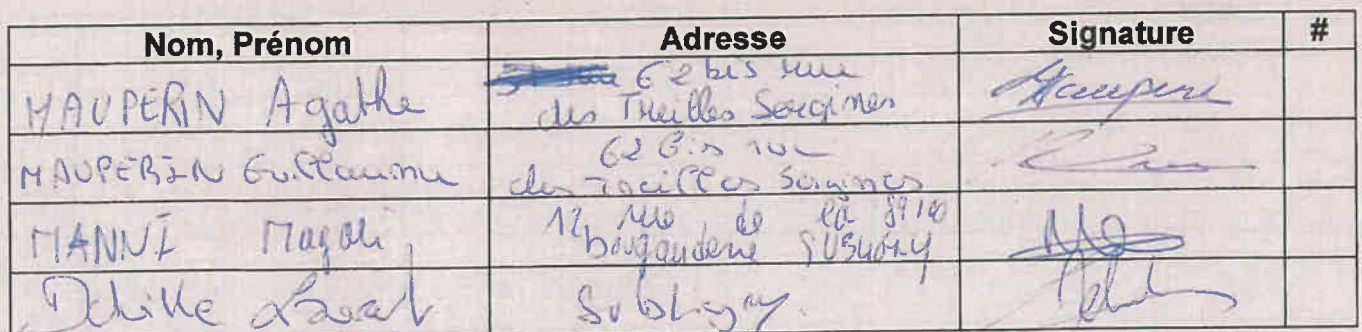 Nom, Prénom Adresse Signature #
MAUPERIN Agathe 62 bis rue
des Treilles Sergines
MAUPERIN Guillaume 62 Bis rue
des Treilles Sergines
MANNI Magali 12 rue de la 89100
SUBLIGNY
Subligny.